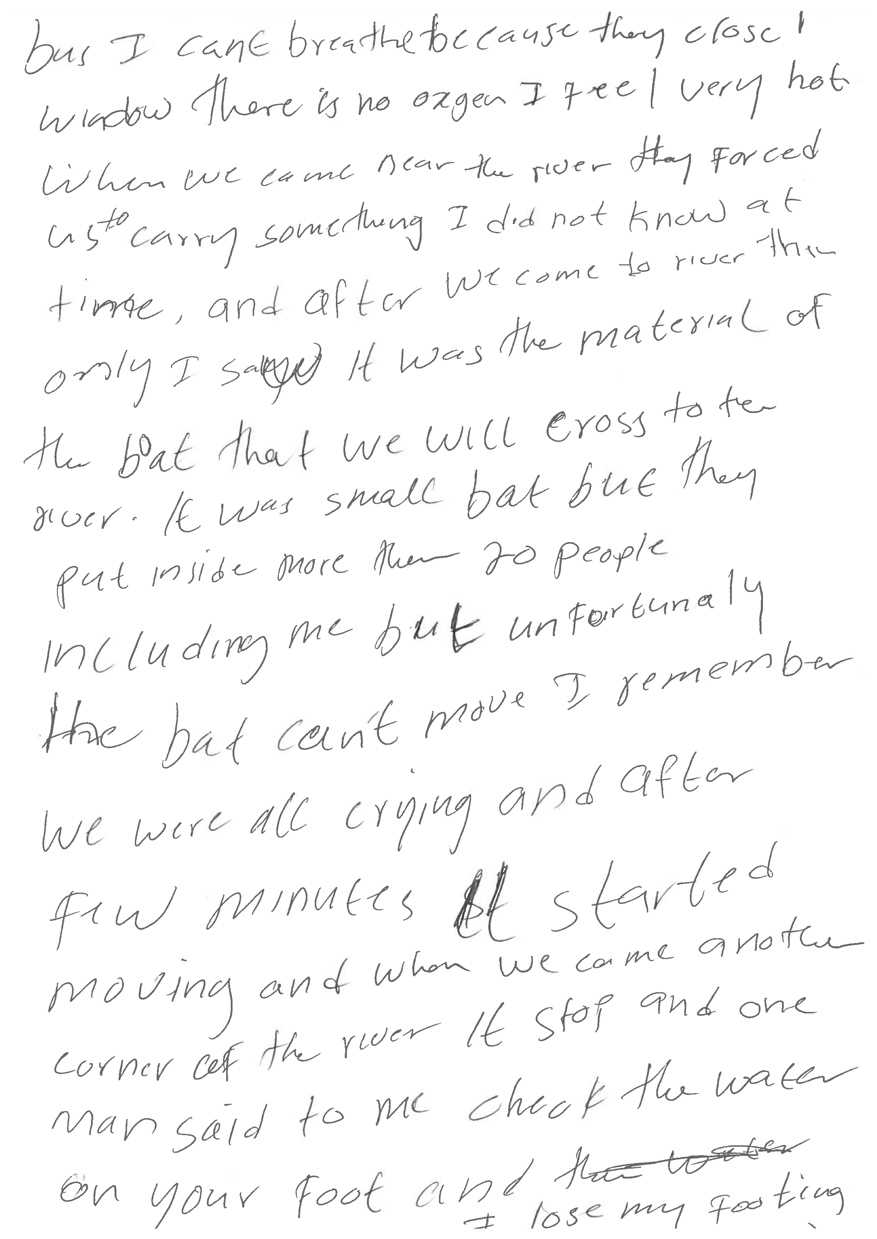 bus I cant breathe because they close
window there is no oxgen I feel very hot
When we came near the river they forced
us to carry something I did not know at
time, and after we come to river then
only I saw It was the material of
the boat that we will cross to the
river. It was small bat but they
put inside more then 20 people
Including me but unfortunaly
the bat can't move I remember
we were all crying and after
few minutes It started
moving and when we came another
corner of the river It stop and one
man said to me check the water
on your foot and the water
I lose my footing